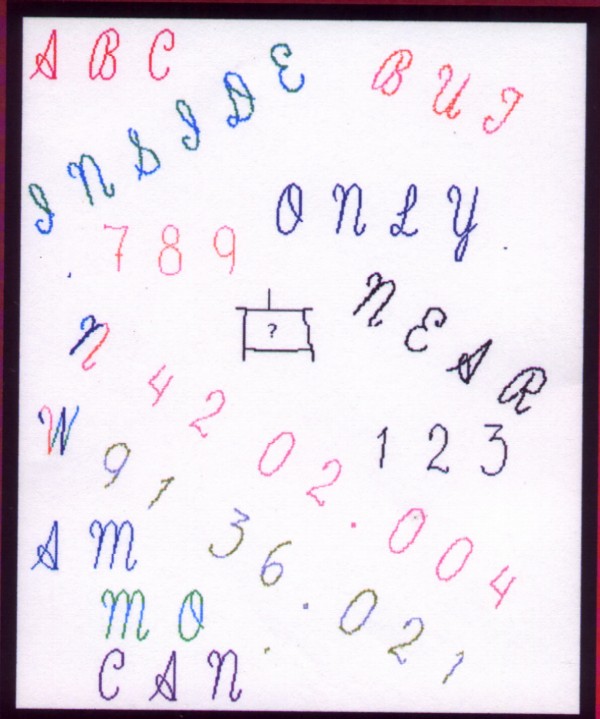 ABC
BUT
INSIDE
ONLY
789
NEAR
?
N
4202.004
W
123
9136.021
AM
MO
CAN